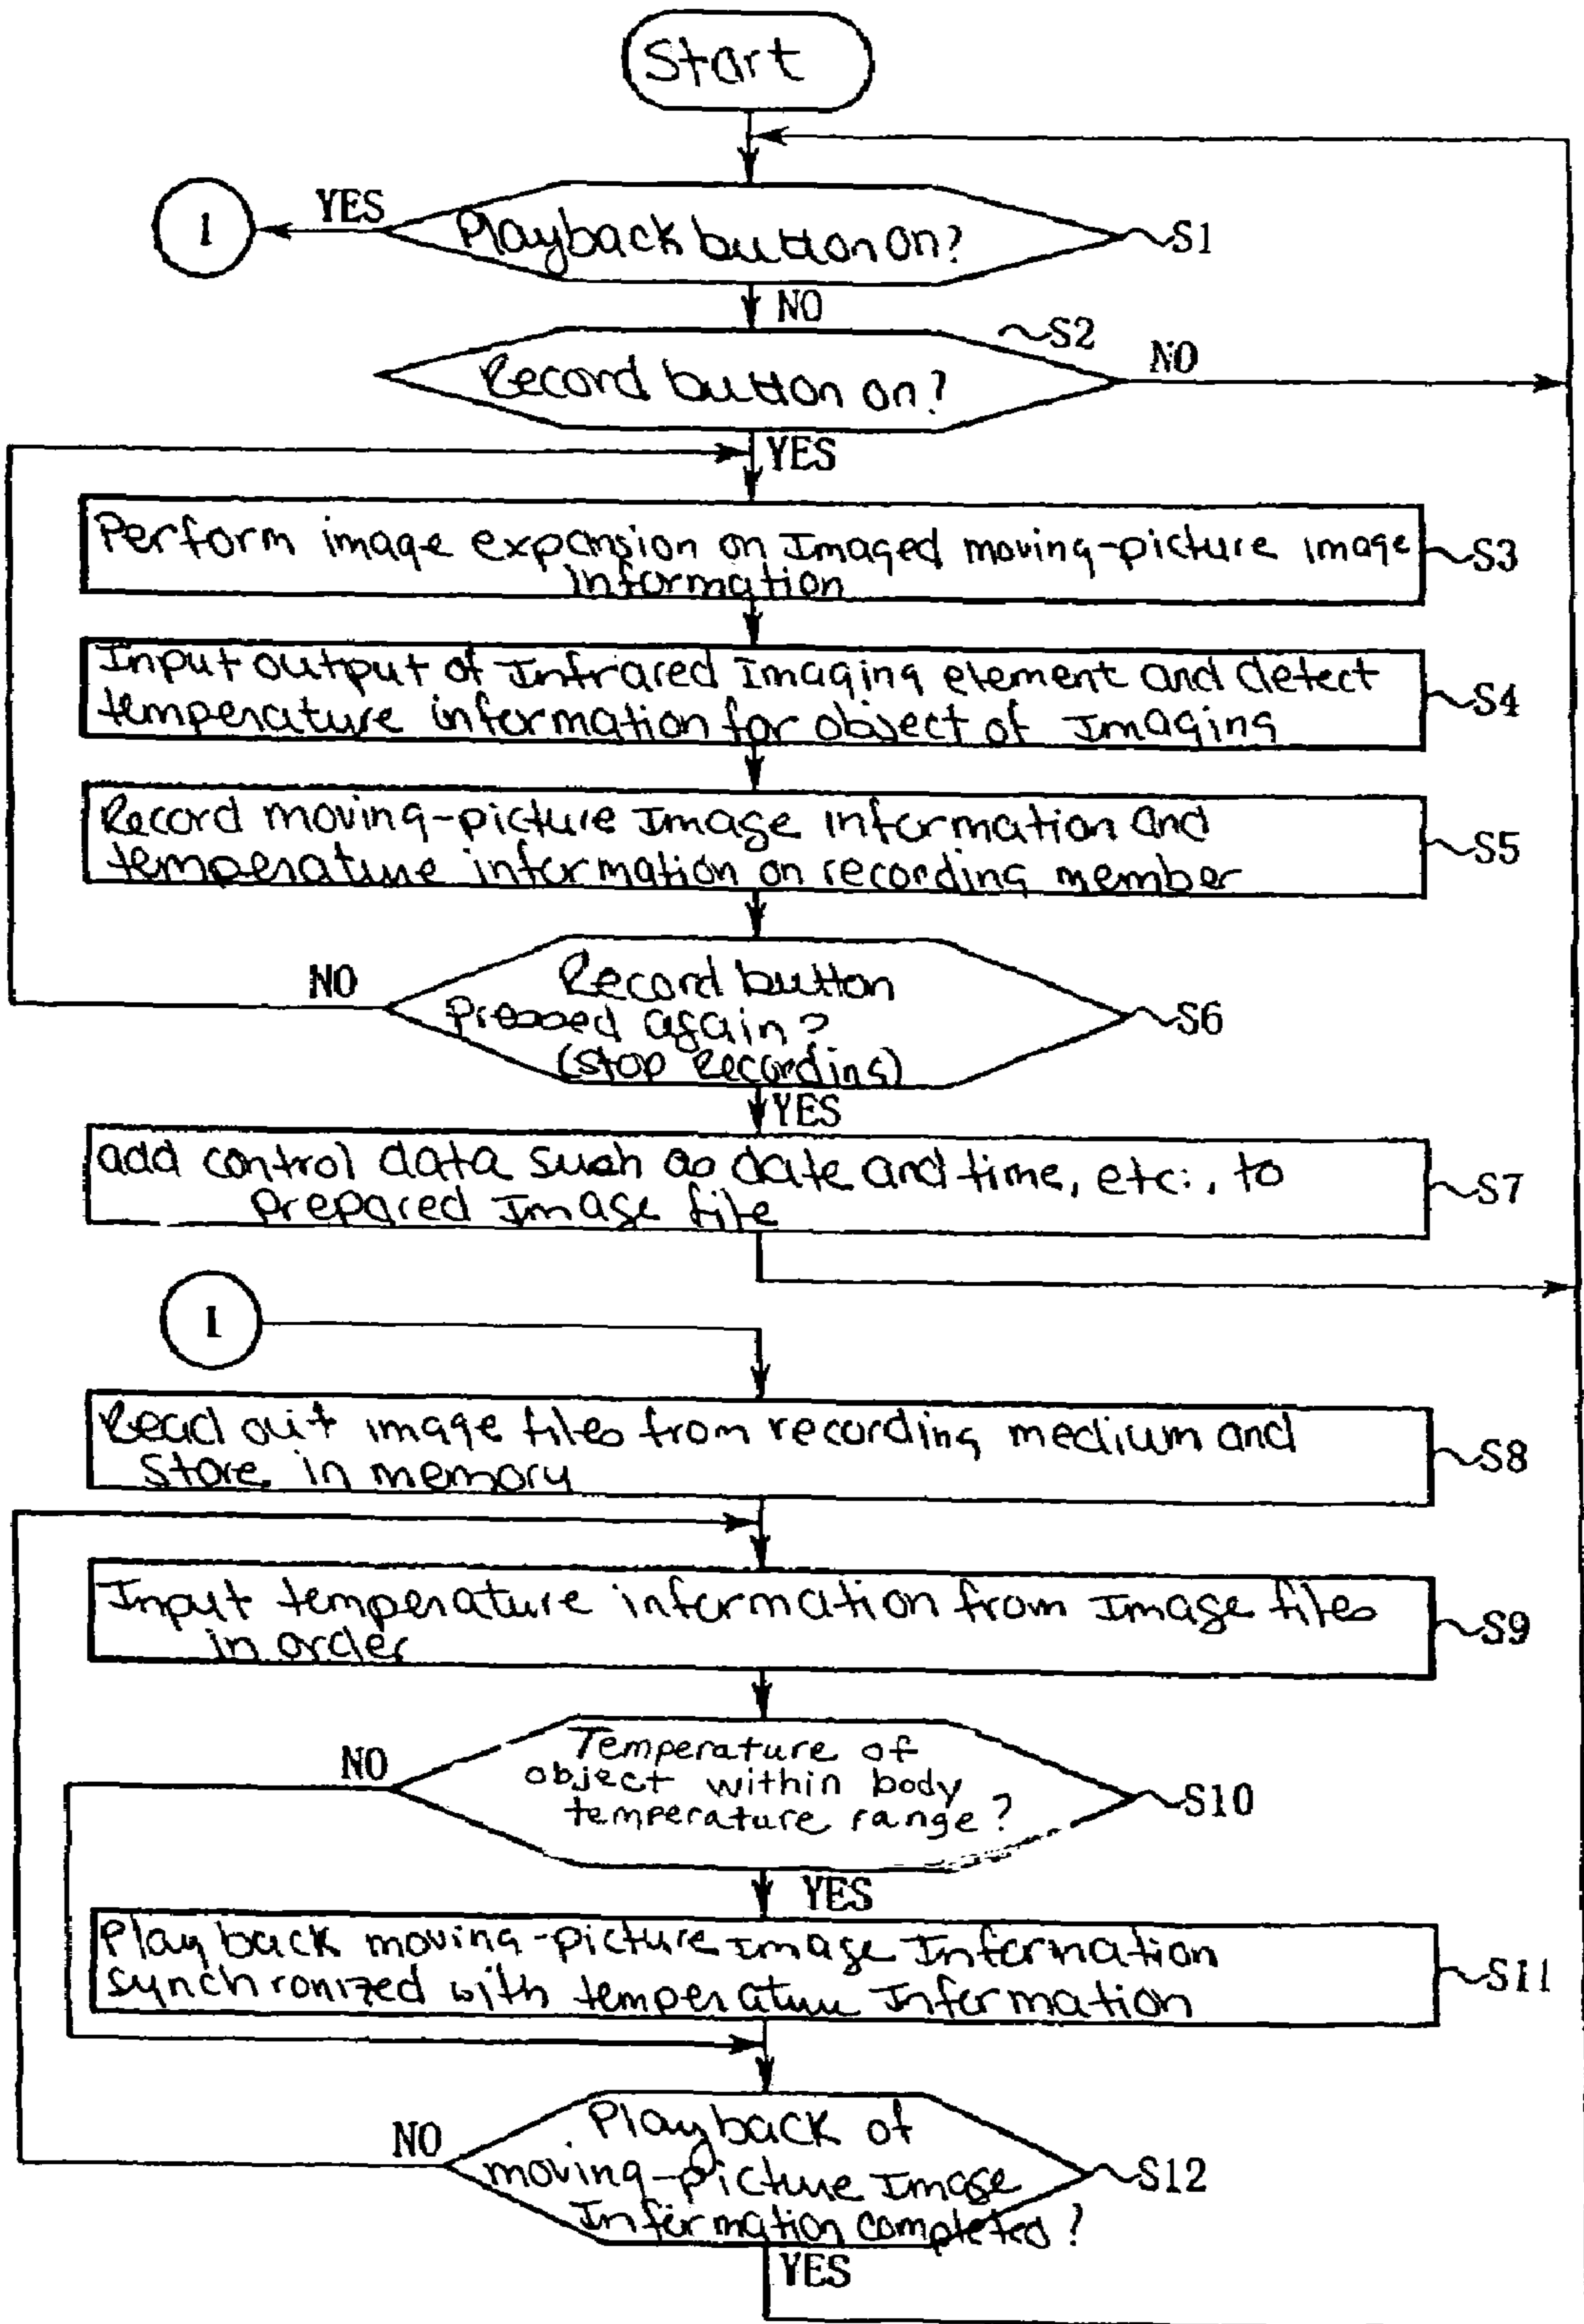 Start
1
YES
Playback button on?
S1
NO
S2
Record button on?
NO
YES
Perform image expansion on Imaged moving-picture image
information
S3
Input output of Infrared Imaging element and detect
temperature information for object of Imaging
S4
Record moving-picture Image information and
temperature information on recording member
S5
NO
Record button
Pressed again?
(stop Recording)
S6
YES
add control data such as date and time, etc., to
prepared Image file
S7
1
Read out image files from recording medium and
store in memory
S8
Input temperature information from Image files
in order
S9
NO
Temperature of
object within body
temperature range?
S10
YES
Playback moving-picture Image Information
synchronized with temperature Information
S11
NO
Playback of
moving-picture Image
Information completed?
S12
YES